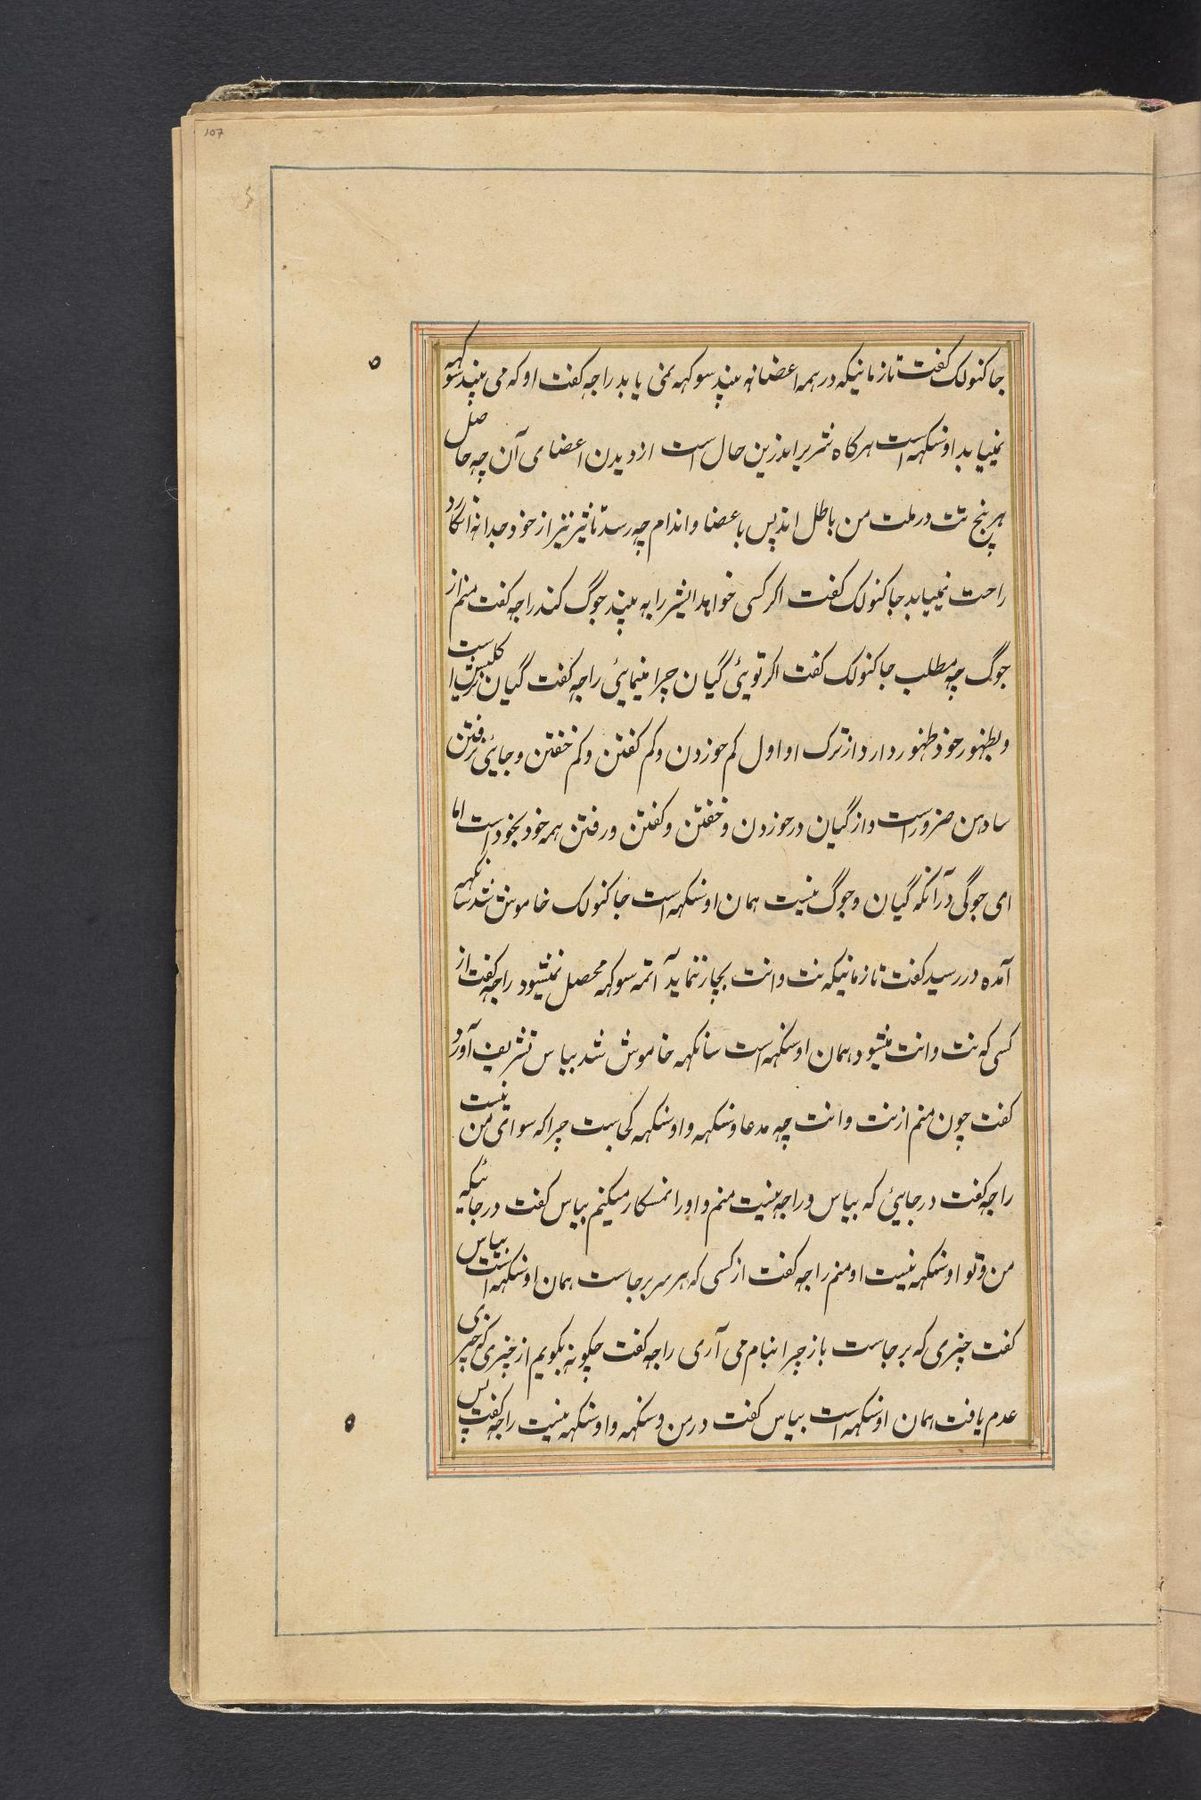 107
جاکنولک کفت تا زمانیکه در همه اعضا نه بیند سوکهه نمی یابد راجه کفت او که می بیند سوکهه
نمییابد اوسکهه است هرکاه شریر اندرین حال است از دیدن اعضای آن چه حاصل
هر پنج تت در ملت من باطل اند پس باعضا و اندام چه رسد تاثیر نیز از خود جدا نه انکارد
راحت نمییابد جاکنولک کفت اکر کسی خواهد ایشر را به بیند جوگ کند راجه کفت منم از
جوگ چه مطلب جاکنولک کفت اکر توئی گیان چرا مینمائی راجه کفت گیان
و بظهور خود ظهور دارد از ترک او اول کم خوردن و کم کفتن و کم خفتن و جائی نرفتن
سادهن ضرور است و از گیان در خوردن و خفتن و کفتن و رفتن همه خود بخود است اما
ای جوگی در آنکه گیان و جوگ نیست همان اوسکهه است جاکنولک خاموش شد سانکهه
آمده در رسید کفت تا زمانیکه نت وانت بچار ننماید آتمه سوکهه محصل نمیشود راجه کفت از
کسی که نت وانت میشود همان اوسکهه است سانکهه خاموش شد بیاس تشریف آورد
کفت چون منم از نت وانت چه مدعا وسکهه و اوسکهه کجاست چرا که سوای من نیست
راجه کفت در جائی که بیاس و راجه نیست منم و او را نمسکار میکنم بیاس کفت در جائیکه
من و تو اوسکهه نیست او منم راجه کفت از کسی که هر سر برجاست همان اوسکهه است بیاس
کفت چیزی که برجاست باز چرا بنام می آری راجه کفت چکونه بکویم از چیزی که چیزی
عدم یافت همان اوسکهه است بیاس کفت در من وسکهه و اوسکهه نیست راجه کفت پس